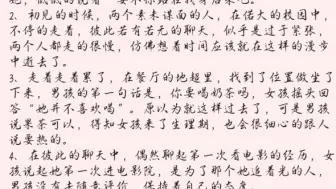 2、初见的时候，两个素未谋面的人，在偌大的校园中，
不停的走着，彼此若有若无的聊天，似乎是过于紧张，
两个人都走的很慢，仿佛想着时间应该就在这样的漫步
中逝去了。
3、走着走着累了，在餐厅的地超里，找到了位置做坐了
下来，男孩的第一句话是，你要喝奶茶吗，女孩摇头回
答“她并不喜欢喝”。原以为就这样过去了，可是男孩
说果茶可以，得知女孩来了生理期，也会很细心的跟人
说要热的。
4、在彼此的聊天中，偶然聊起第一次看电影的经历，女
孩说起她第一次进电影院，是为了那个她追着光的人，